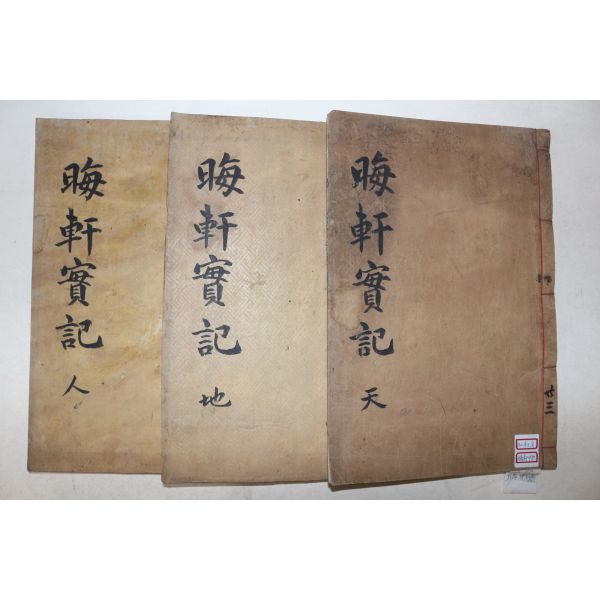 晦軒實記
天
共三
晦軒實記
地
晦軒實記
人